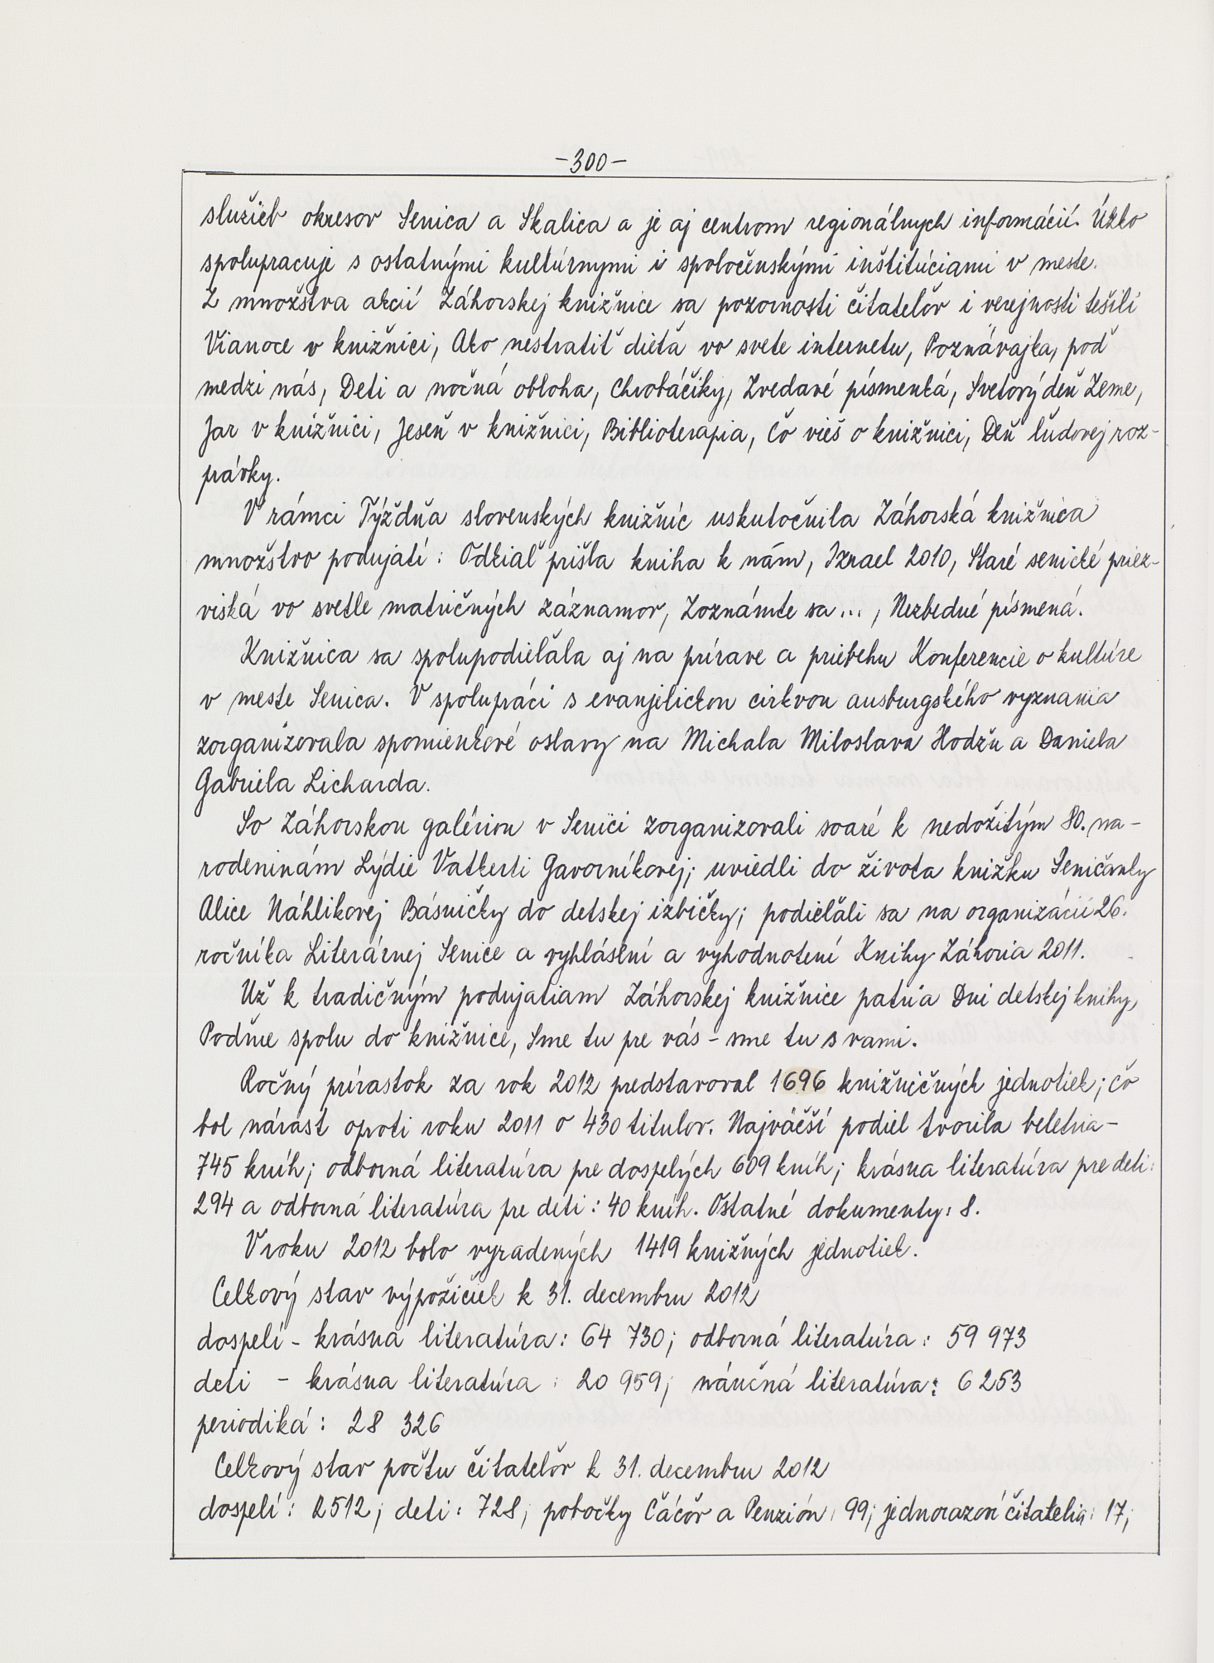 -300-
služieb okresov Senica a Skalica a je aj centrom regionálnych informácií. Úzko
spolupracuje s ostatnými kultúrnymi i spoločenskými inštitúciami v meste.
Z množstva akcií Záhorskej knižnice sa pozornosti čitateľov i verejnosti tešili
Vianoce v knižnici, Ako nestratiť dieťa vo svete internetu, Poznávajka, poď
medzi nás, Deti a nočná obloha, Chrobáčiky, Zvedavé písmenká, Svetový deň Zeme,
Jar v knižnici, Jeseň v knižnici, Biblioterapia, Čo vieš o knižnici, Deň ľudovej roz-
právky.
V rámci Týždňa slovenských knižníc uskutočnila Záhorská knižnica
množstvo podujatí: Odkiaľ prišla kniha k nám, Izrael 2010, Staré senické priez-
viská vo svetle matričných záznamov, Zoznámte sa..., Nezbedné písmená.
Knižnica sa spolupodieľala aj na prírave a priebehu Konferencie o kultúre
v meste Senica. V spolupráci s evanjelickou cirkvou ausburgského vyznania
zorganizovala spomienkové oslavy na Michala Miloslava Hodžu a Daniela
Gabriela Licharda.
So Záhorskou galériou v Senici zorganizovali soaré k nedožitým 80. na-
rodeninám Lýdie Vatkerti Gavorníkovej; uviedli do života knižku Seničanky
Alice Náhlikovej Básničky do detskej izbičky; podieľali sa na organizácií 26.
ročníka Literárnej Senice a vyhlásení a vyhodnotení Knihy Záhoria 2011.
Už k tradičným podujatiam Záhorskej knižnice patria Dni detskej knihy,
Poďme spolu do knižnice, Sme tu pre vás - sme tu s vami.
Ročný prírastok za rok 2012 predstavoval 1696 knižničných jednotiek; čo
bol nárast oproti roku 2011 o 430 titulov. Najväčší podiel tvorila beletria -
745 kníh; odborná literatúra pre dospelých 609 kníh; krásna literatúra pre deti:
294 a odborná literatúra pre deti: 40 kníh. Ostatné dokumenty: 8.
V roku 2012 bolo vyradených 1419 knižných jednotiek.
Celkový stav výpožičiek k 31. decembru 2012
dospelí - krásna literatúra: 64 730; odborná literatúra: 59 973
deti - krásna literatúra: 20 959; náučná literatúra: 6 253
periodiká: 28 326
Celkový stav počtu čitateľov k 31. decembru 2012
dospelí: 2512; deti: 728; pobočky Čáčov a Penzión: 99; jednorazoví čitatelia: 17;